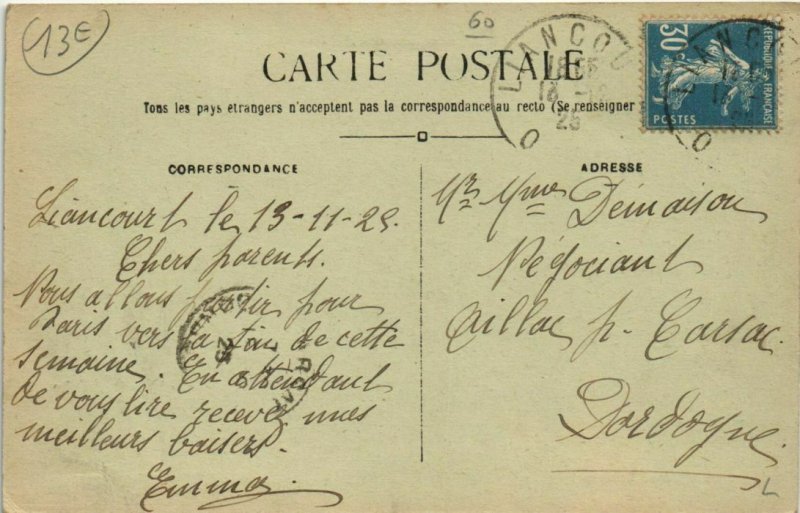 13E
60
LIANCOU
30c
REPUBLIQUE FRANÇAISE
POSTES
CARTE POSTALE
Tous les pays étrangers n'acceptent pas la correspondance au recto (Se renseigner
CORRESPONDANCE
Liancourt le 13-11-25.
Chers parents.
Nous allons partir pour
Paris vers la fin de cette
semaine. En attendant
de vous lire recevez mes
meilleurs baisers.
Emma
ADRESSE
Mr Mme Démaison
Négociant
Aillac p. Carsac
Dordogne